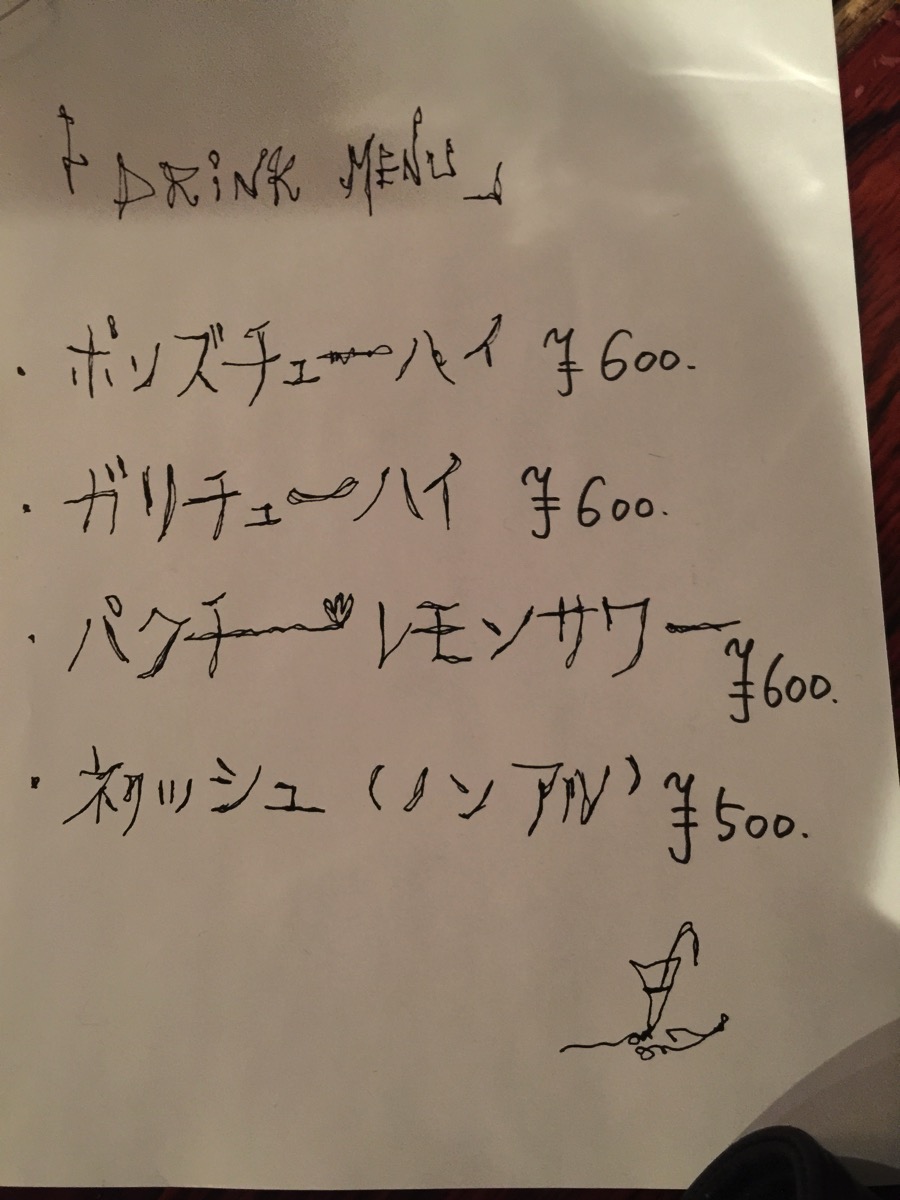 『DRiNK MENU』
・ボンズチューハイ ¥600.
・ガリチューハイ ¥600.
・パクチーレモンサワー ¥600.
・ネクッシュ(ノンアル) ¥500.